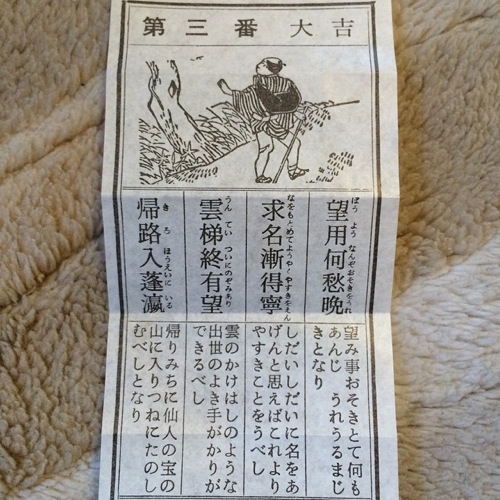 第三番 大吉
望用何愁晩
ぼうよう なんぞおそきをうれ
求名漸得寧
なをもとめてようやくやすきをえん
雲梯終有望
うんてい ついにのぞみあり
帰路入蓬瀛
きろ ほうえいに いる
望み事おそきとて何も
あんじ うれうるまじ
きとなり
しだいしだいに名をあ
げんと思えばこれより
やすきことをうべし
雲のかけはしのような
出世のよき手がかりが
できるべし
帰りみちに仙人の宝の
山に入りつねにたのし
むべしとなり